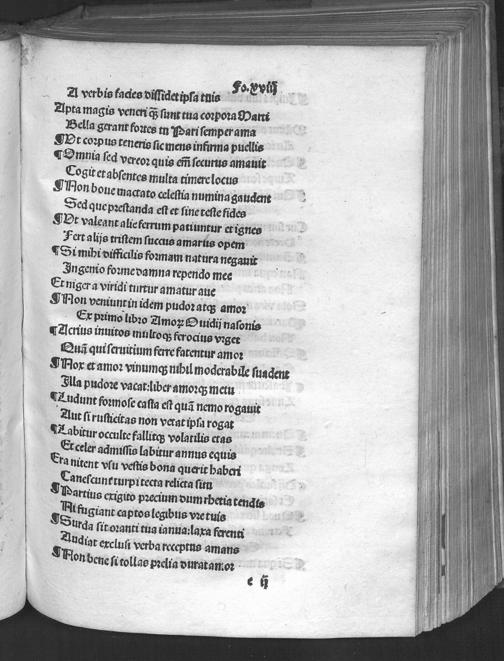 Fo.xviij
A verbis facies dissidet ipsa tuis
Apta magis veneri q̄ȝ sunt tua corpora Marti
Bella gerant fortes tu Pari semper ama
¶ Ut corpus teneris sic mens infirma puellis
¶ Omnia sed vereor quis em̄ securus amauit
Cogit et absentes multa timere locus
¶ Non boue mactato celestia numina gaudent
Sed que prestanda est et sine teste fides
¶ Ut valeant alie ferrum patiuntur et ignes
Fert alijs tristem succus amarus opem
¶ Si mihi difficilis formam natura negauit
Ingenio forme damna rependo mee
Et niger a viridi turtur amatur aue
¶ Non veniunt in idem pudor atqȝ amor
Ex primo libro Amorꝝ Ouidij nasonis
¶ Acrius inuitos multoqȝ ferocius vrget
Quā qui seruitium ferre fatentur amor
¶ Nox et amor vinumqȝ nihil moderabile suadent
Illa pudore vacat: liber amorqȝ metu
¶ Ludunt formose casta est quā nemo rogauit
Aut si rusticitas non vetat ipsa rogat
¶ Labitur occulte fallitqȝ volatilis etas
Et celer admissis labitur annus equis
Era nitent vsu vestis bona querit haberi
Canescunt turpi tecta relicta situ
¶ Partius exigito precium dum rhetia tendis
Ni fugiant captos legibus vre tuis
¶ Surda sit oranti tua ianua: laxa ferenti
Audiat exclusi verba receptus amans
¶ Non bene si tollas prelia durat amor
e ij